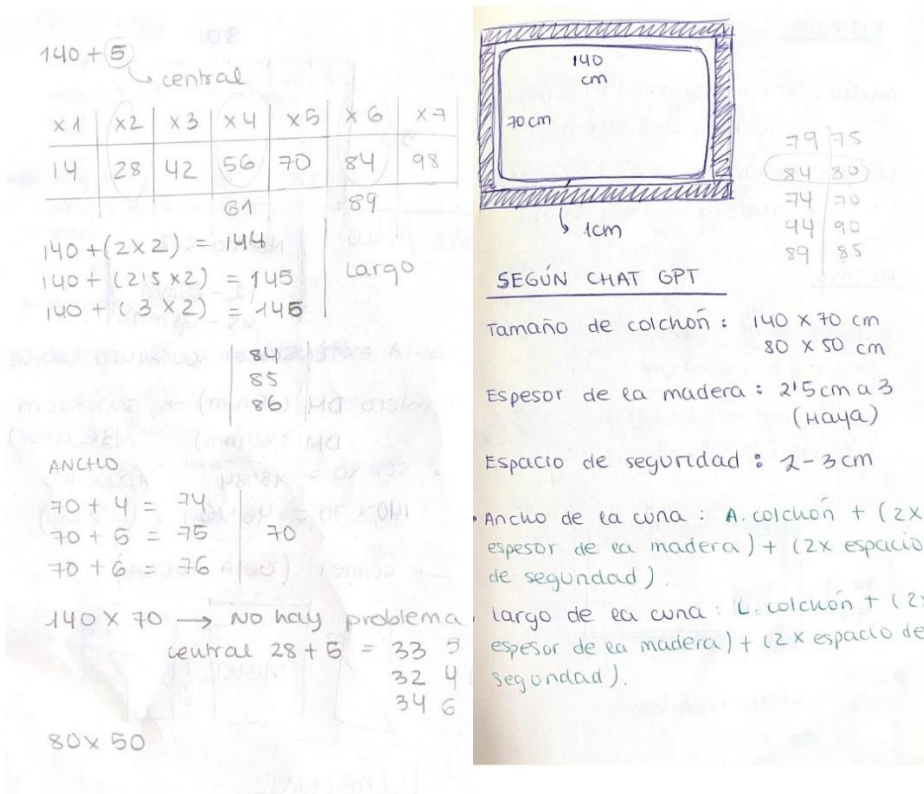 140 + 5
central
x1 x2 x3 x4 x5 x6 x7
14 28 42 56 70 84 98
61 89
140 + (2x2) = 144
140 + (2'5 x2) = 145
140 + (3 x2) = 146
Largo
84
85
86
ANCHO
70 + 4 = 74
70 + 5 = 75
70 + 6 = 76
70
140 x 70 → No hay problema
central 28 + 5 = 33 5
32 4
34 6
80 x 50
140
cm
70 cm
1cm
79 75
84 80
74 70
94 90
89 85
SEGÚN CHAT GPT
Tamaño de colchón : 140 x 70 cm
80 x 50 cm
Espesor de la madera : 2'5 cm a 3
(Haya)
Espacio de seguridad : 2-3 cm
Ancho de la cuna : A. colchón + (2x
espesor de la madera) + (2x espacio
de seguridad).
Largo de la cuna : L. colchón + (2x
espesor de la madera) + (2x espacio de
seguridad).